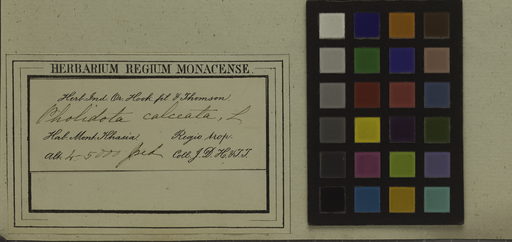 HERBARIUM REGIUM MONACENSE.
Herb. Ind. Or. Hook. fil. & Thomson
Pholidota calceata, L
Hab. Mont. Khasia Regio trop.
Alt. 4-5000 ped Coll. J. D. H. & T. T.